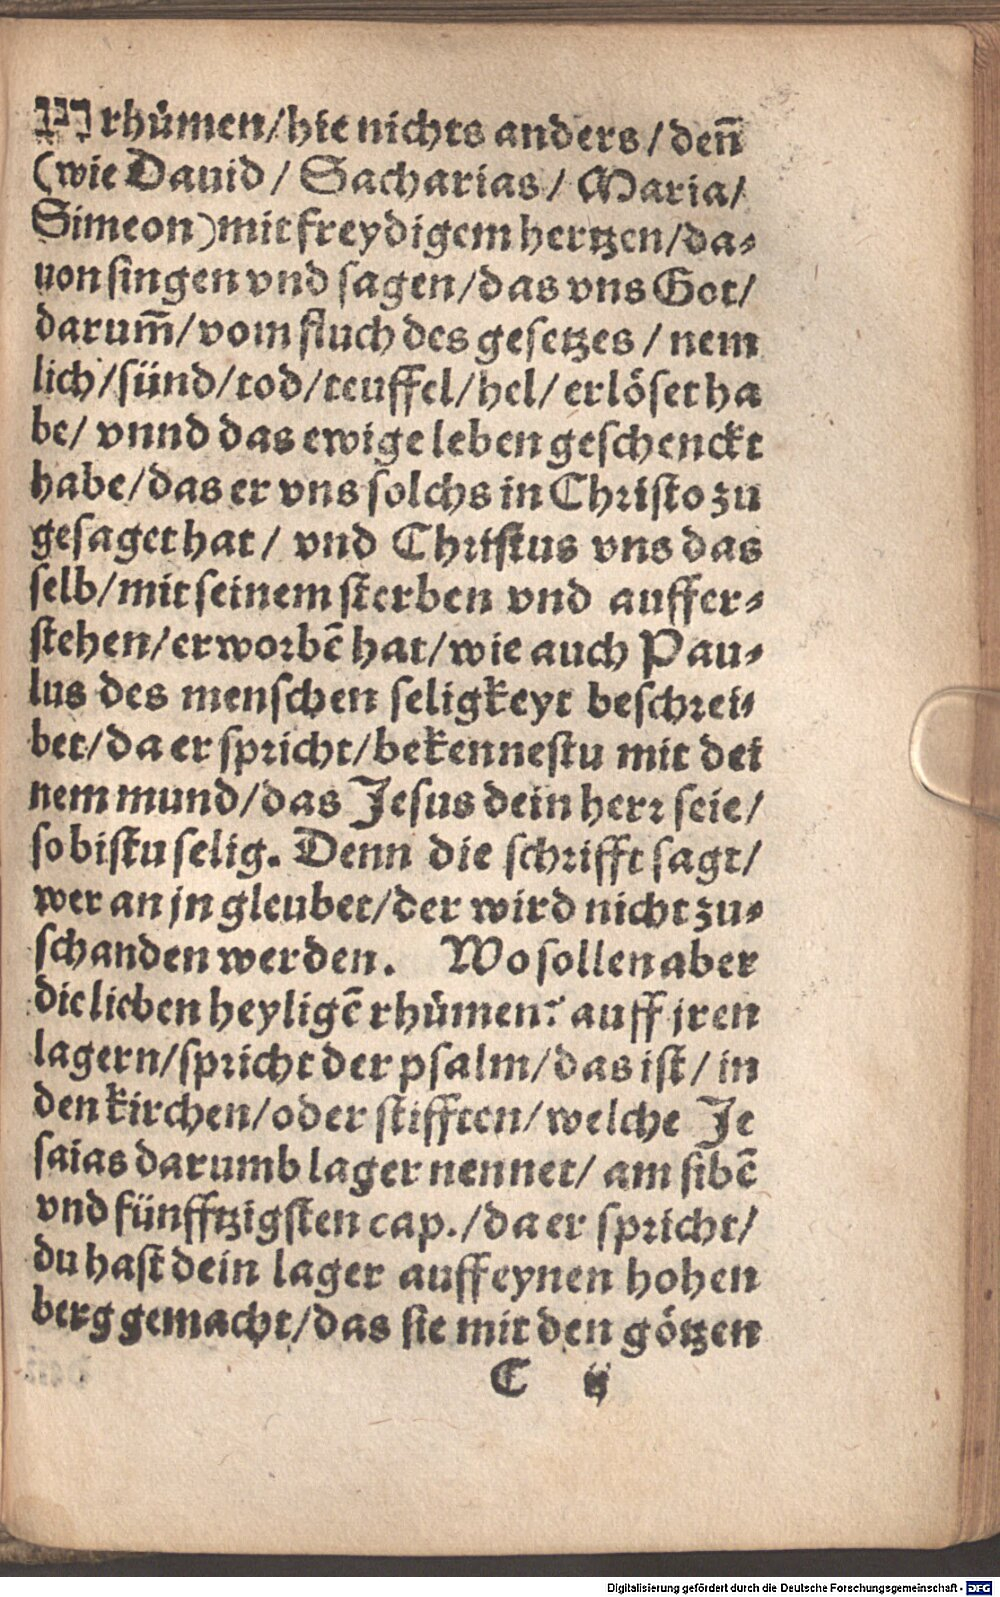 רנן rhümen/hie nichts anders/ deñ
(wie Dauid/ Sacharias/ Maria/
Simeon)mit freydigem hertzen/da⸗
uon singen vnd sagen/das vns Got/
darum̃/vom fluch des gesetzes / nem
lich/sünd/tod/teuffel/hel/ erlöset ha
be/ vnnd das ewige leben geschenckt
habe/das er vns solchs in Christo zu
gesaget hat/ vnd Christus vns das
selb/mit seinem sterben vnd auffer⸗
stehen/erworbẽ hat/wie auch Pau⸗
lus des menschen seligkeyt beschrei⸗
bet/da er spricht/bekennestu mit dei
nem mund/das Jesus dein herr seie/
so bistu selig. Denn die schrifft sagt/
wer an jn gleubet/der wird nicht zu⸗
schanden werden. Wo sollen aber
die lieben heyligẽ rhümen? auff jren
lagern/spricht der psalm/das ist/ in
den kirchen/oder stifften/welche Je
saias darumb lager nennet/ am sibẽ
vnd fünfftzigsten cap./da er spricht/
du hast dein lager auff eynen hohen
berg gemacht/das sie mit den götzen
C ij
Digitalisierung gefördert durch die Deutsche Forschungsgemeinschaft - DFG